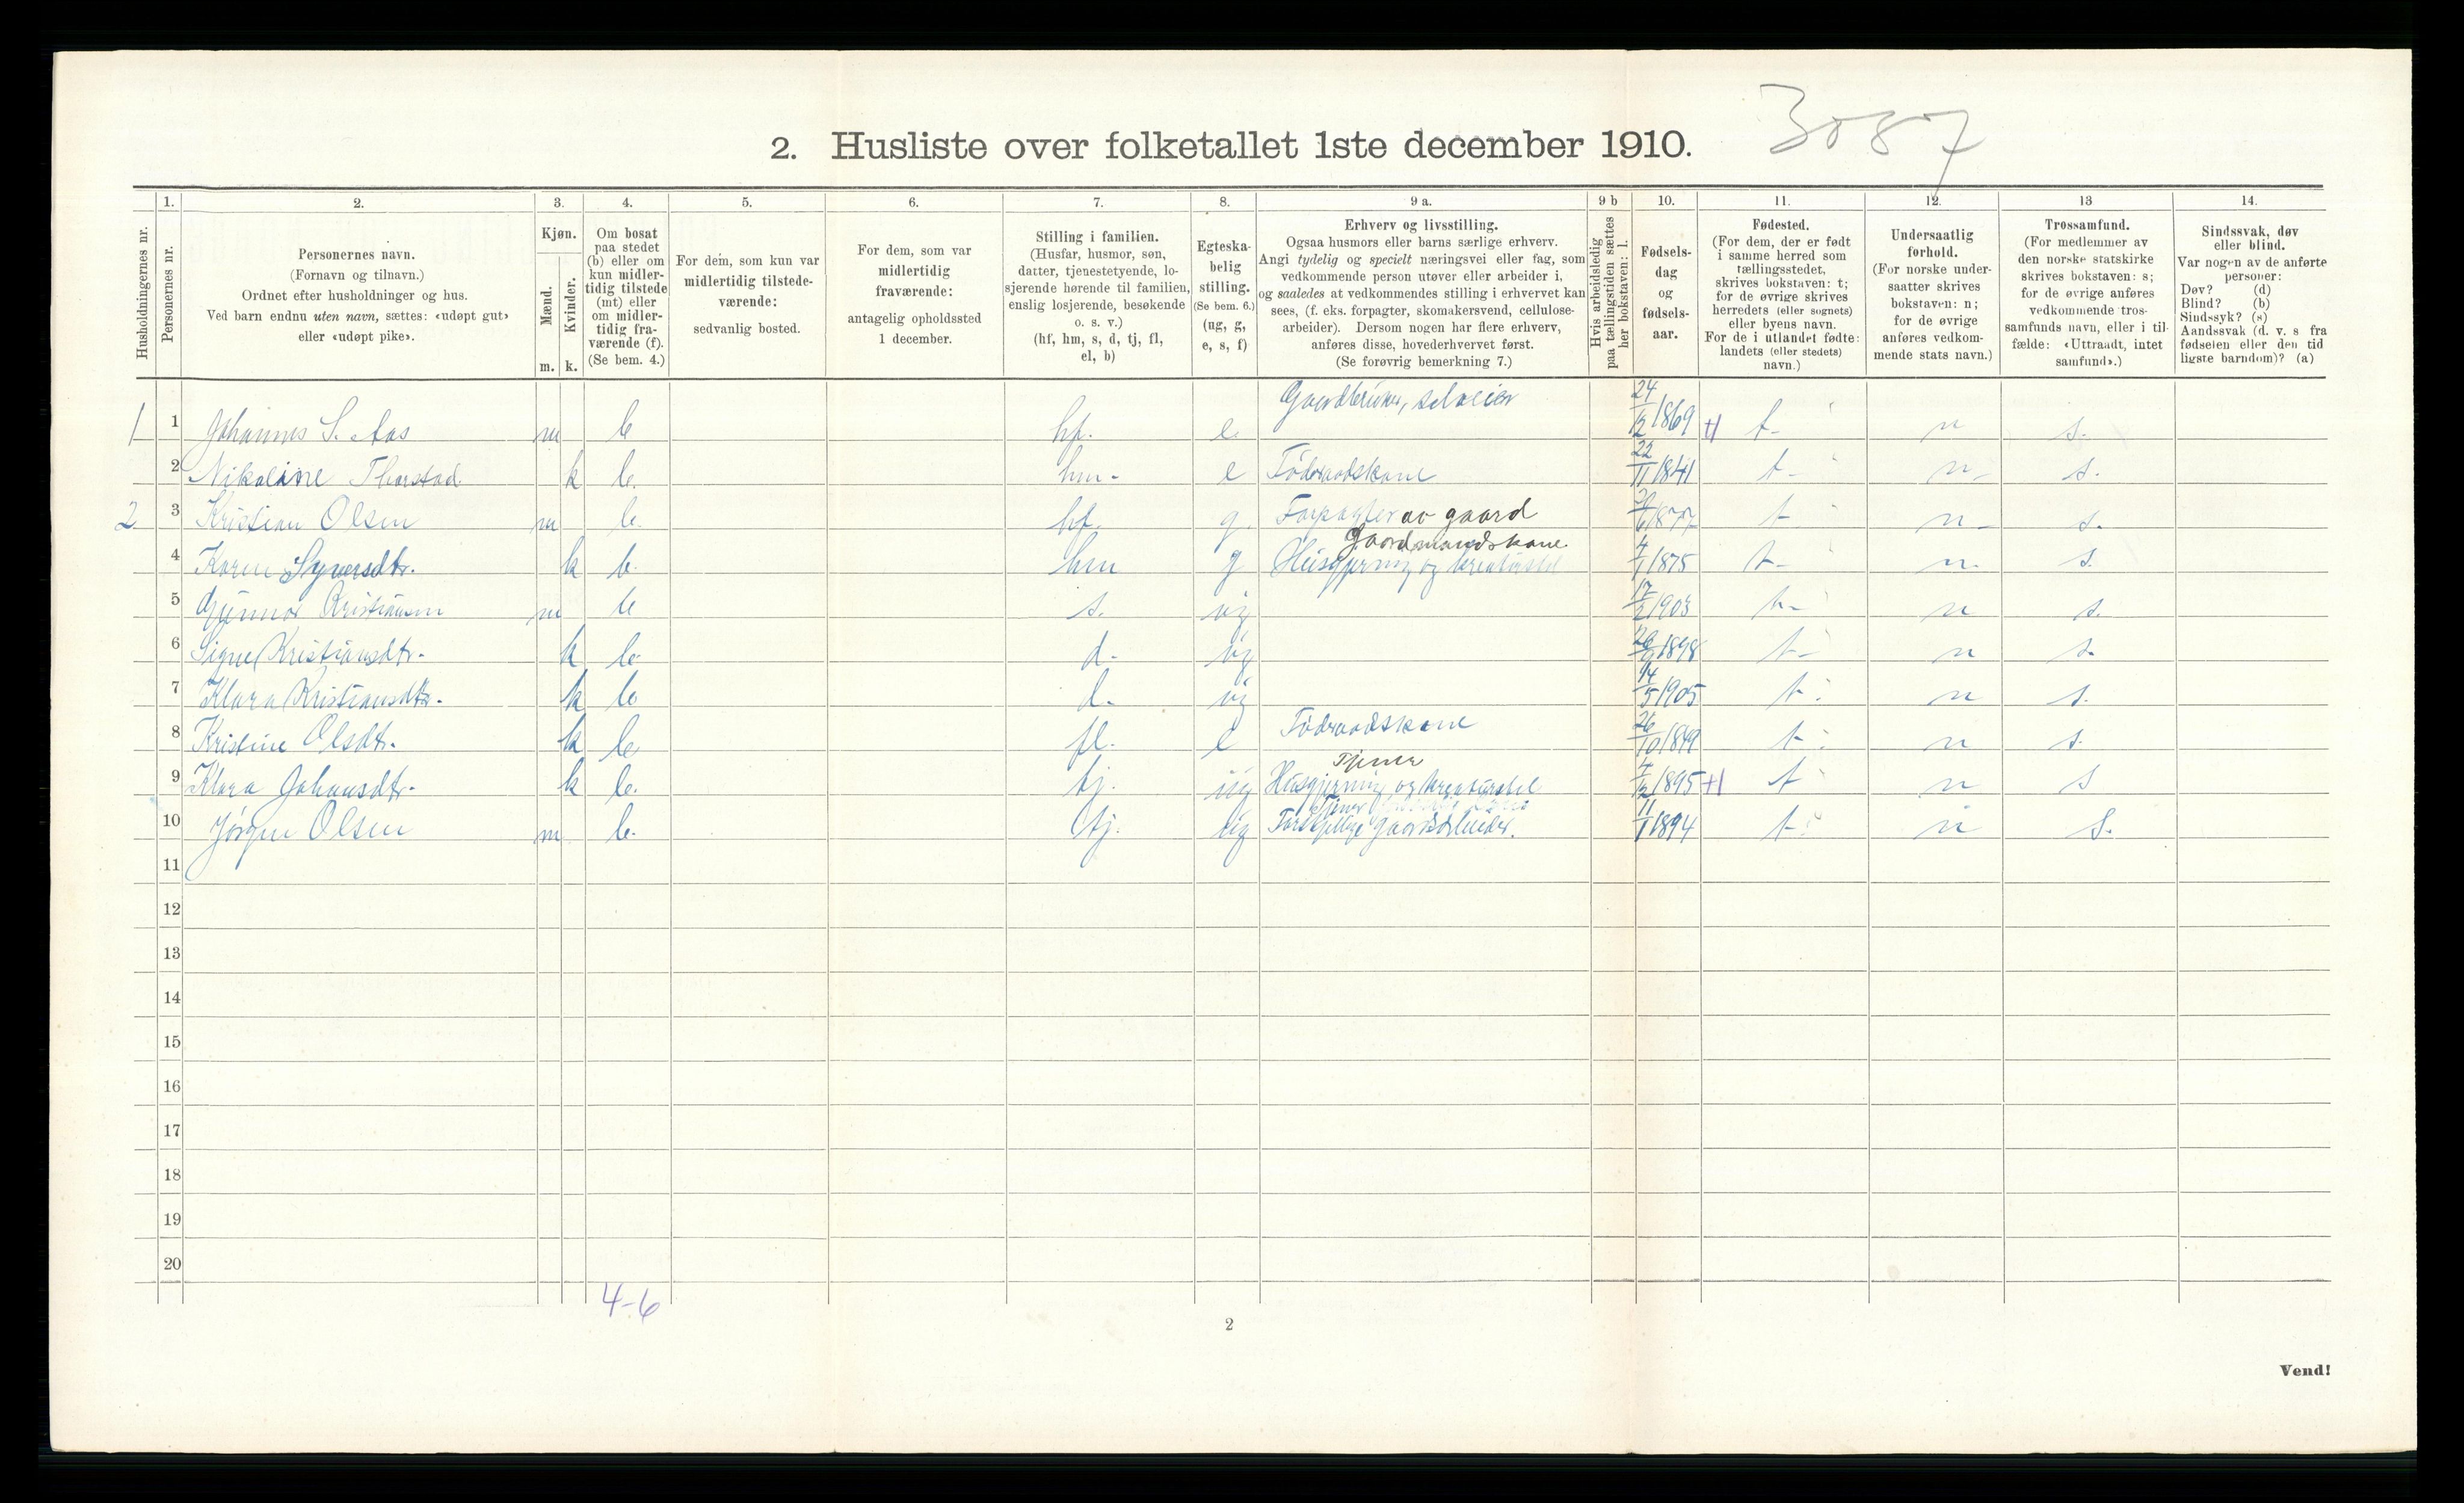 3087
2. Husliste over folketallet 1ste december 1910.
Husholdningernes nr.
1. Personernes nr.
2. Personernes navn.
(Fornavn og tilnavn.)
Ordnet efter husholdninger og hus.
Ved barn endnu uten navn, sættes: «udøpt gut»
eller «udøpt pike».
3. Kjøn.
Mænd. m.
Kvinder. k.
4. Om bosat
paa stedet
(b) eller om
kun midler-
tidig tilstede
(mt) eller
om midler-
tidig fra-
værende (f).
(Se bem. 4.)
5. For dem, som kun var
midlertidig tilstede-
værende:
sedvanlig bosted.
6. For dem, som var
midlertidig
fraværende:
antagelig opholdssted
1 december.
7. Stilling i familien.
(Husfar, husmor, søn,
datter, tjenestetyende, lo-
sjerende hørende til familien,
enslig losjerende, besøkende
o. s. v.)
(hf, hm, s, d, tj, fl,
el, b)
8. Egteska-
belig
stilling.
(Se bem. 6.)
(ug, g,
e, s, f)
9 a. Erhverv og livsstilling.
Ogsaa husmors eller barns særlige erhverv.
Angi tydelig og specielt næringsvei eller fag, som
vedkommende person utøver eller arbeider i,
og saaledes at vedkommendes stilling i erhvervet kan
sees, (f. eks. forpagter, skomakersvend, cellulose-
arbeider). Dersom nogen har flere erhverv,
anføres disse, hovederhvervet først.
(Se forøvrig bemerkning 7.)
9 b Hvis arbeidsledig
paa tællingstiden sættes
her bokstaven: l.
10. Fødsels-
dag
og
fødsels-
aar.
11. Fødested.
(For dem, der er født
i samme herred som
tællingsstedet,
skrives bokstaven: t;
for de øvrige skrives
herredets (eller sognets)
eller byens navn.
For de i utlandet fødte:
landets (eller stedets)
navn.)
12. Undersaatlig
forhold.
(For norske under-
saatter skrives
bokstaven: n;
for de øvrige
anføres vedkom-
mende stats navn.)
13 Trossamfund.
(For medlemmer av
den norske statskirke
skrives bokstaven: s;
for de øvrige anføres
vedkommende tros-
samfunds navn, eller i til-
fælde: «Uttraadt, intet
samfund».)
14. Sindssvak, døv
eller blind.
Var nogen av de anførte
personer:
Døv? (d)
Blind? (b)
Sindssyk? (s)
Aandssvak (d. v. s fra
fødselen eller den tid
ligste barndom)? (a)
1 1 Johannes S. Aas m b hf. e. Gaardbruker, selveier 24/12 1869 t- n s.
2 Nikoline Thorstad. k b. hm- e Føderaadskone 22/11 1841 t- n- s.
2 3 Kristian Olsen m b. hf. g. Forpagter av gaard /6 1877 t- n- s.
4 Karen Syversdtr. k b. hm g Gaardmandskone Husgjerning og kreaturstel 4/1 1875 t- n. s.
5 Gunnar Kristiansen m b s. ug 17/2 1903 t- n s.
6 Signe Kristiansdtr. k b. d- ug 26/9 1898 t- n s.
7 Klara Kristiansdtr. k b d- ug 14/5 1905 t- n s.
8 Kristine Olsdtr. k b fl. e Føderaadskone 26/10 1849 t- n s.
9 Klara Johansdtr. k b. tj. ug Tjener Husgjerning og kreaturstel /12 1895 t n s
10 Jørgen Olsen m b. tj. ug Tjener Forskjellige gaardsarbeider. 11/1 1894 t- n s.
11
12
13
14
15
16
17
18
19
20
4-6
2
Vend!